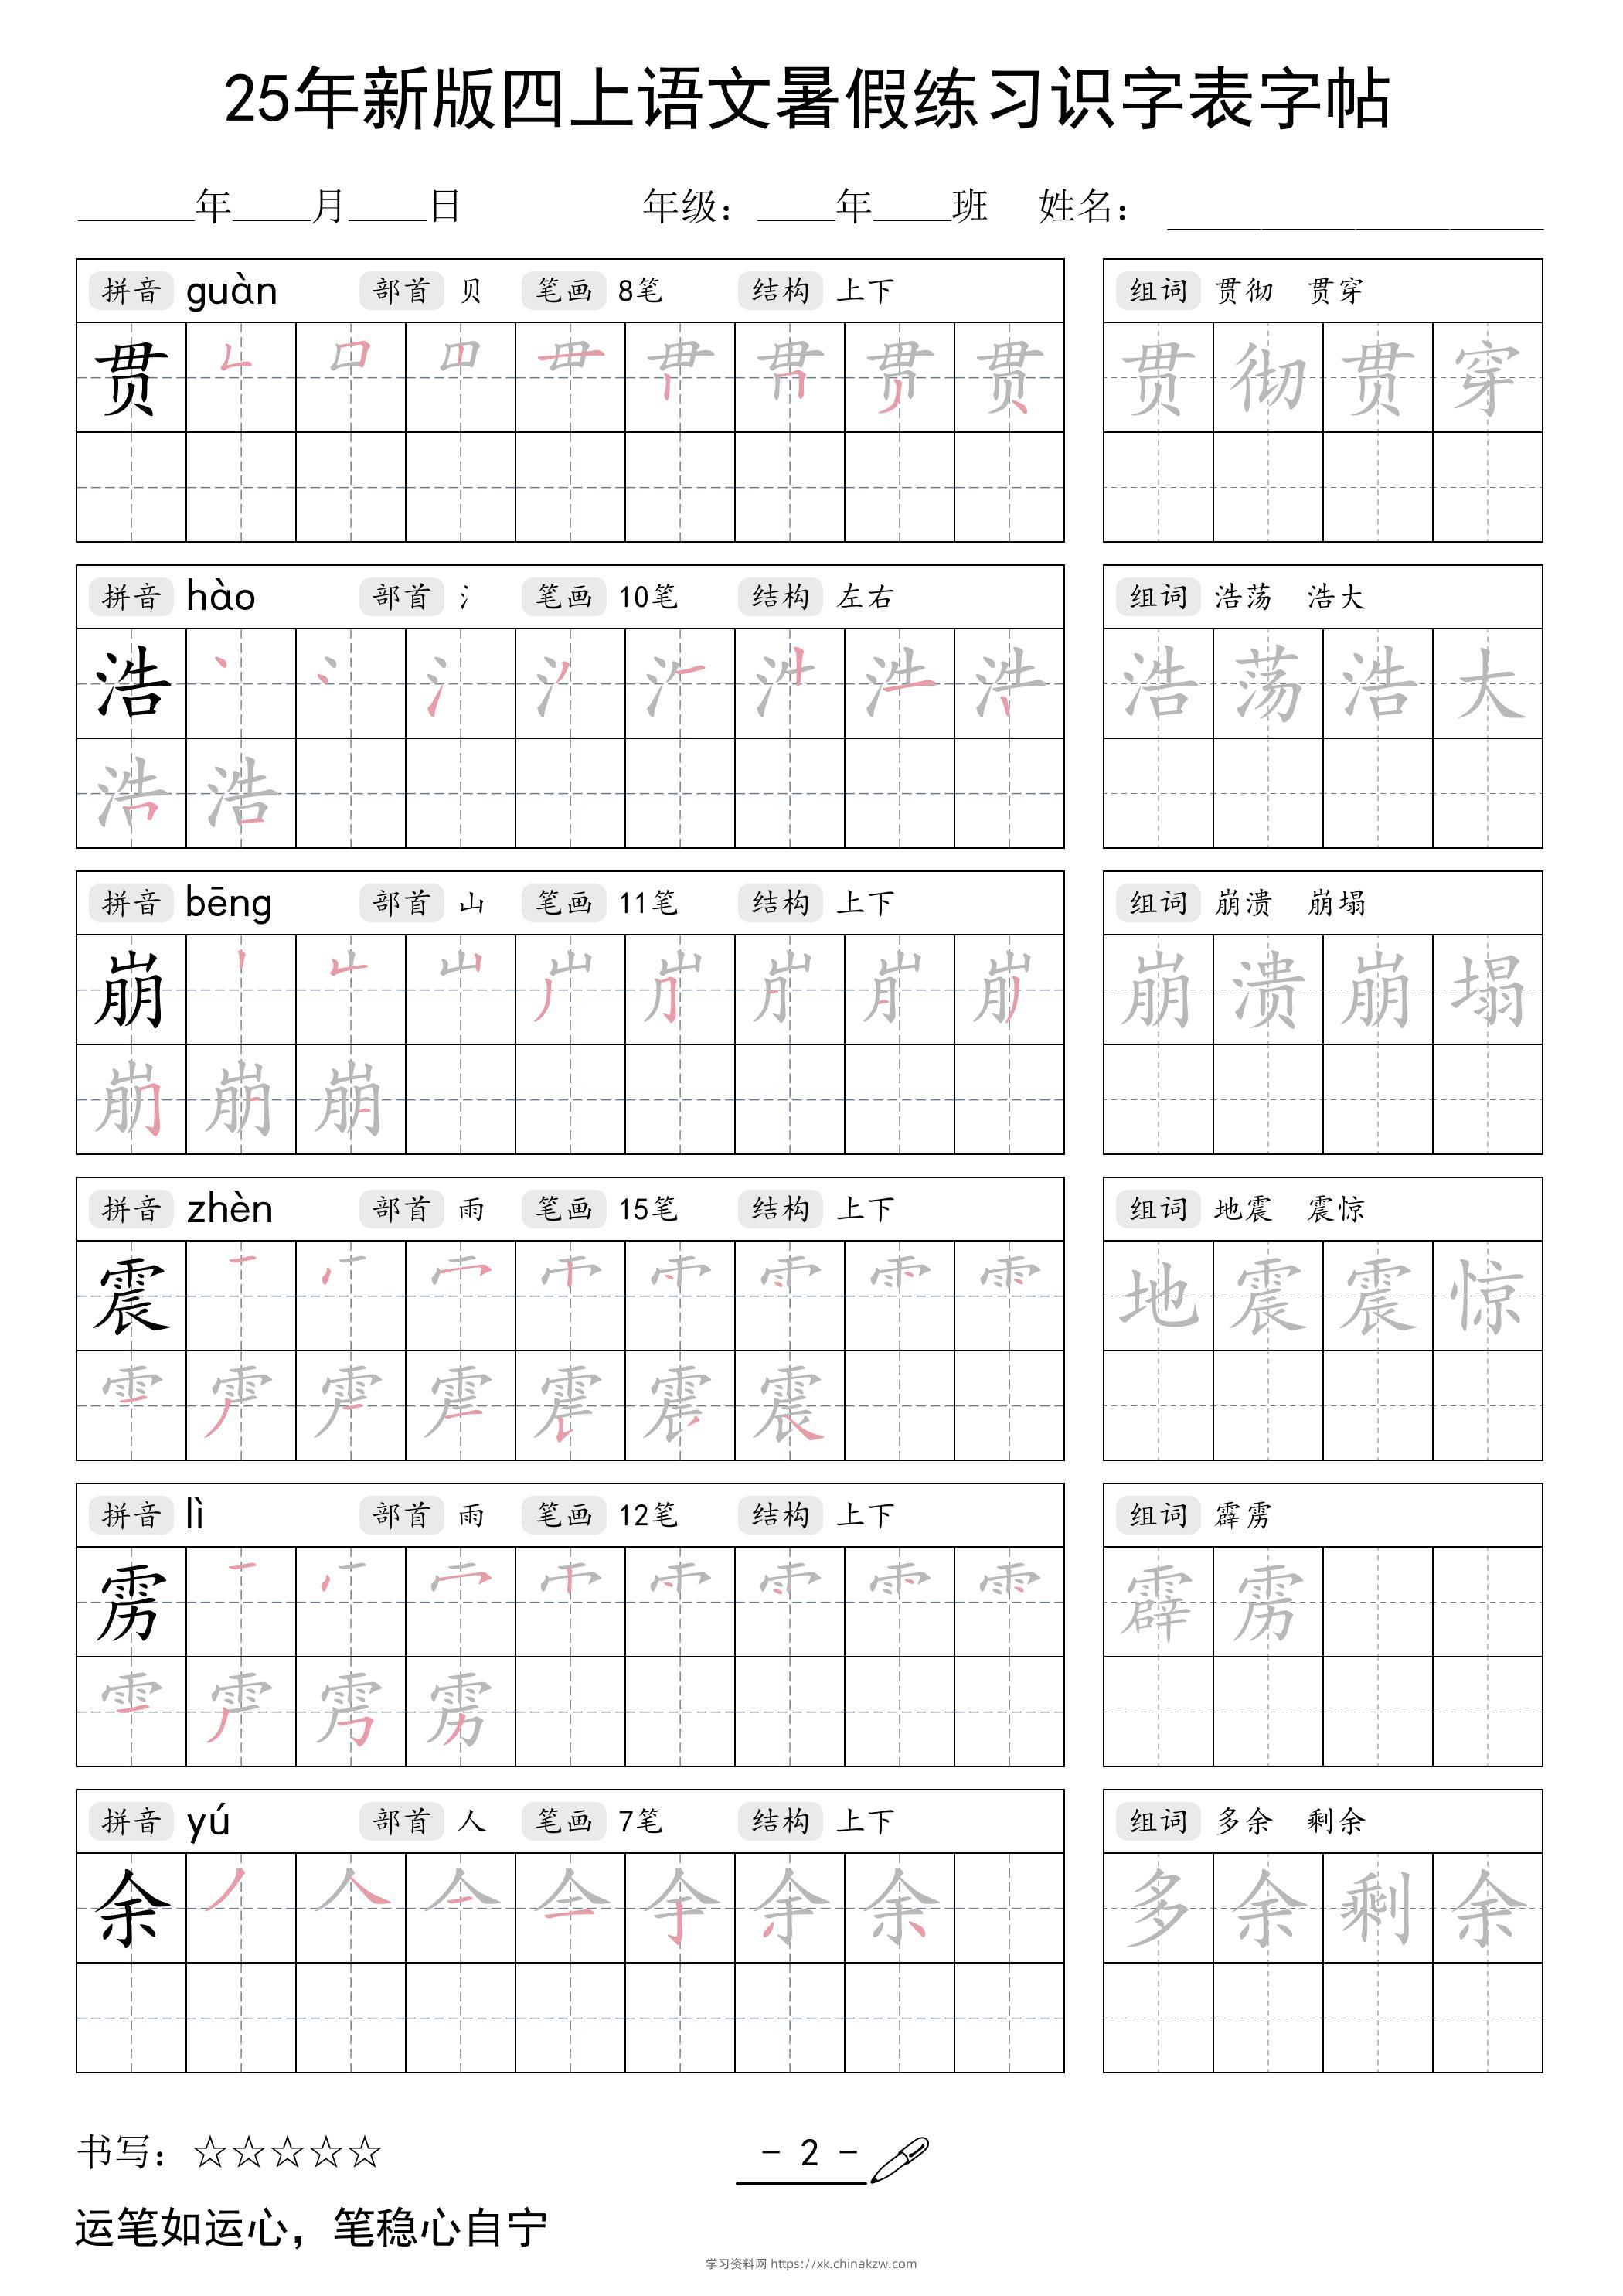 25年新版四上语文暑假练习识字表字帖
______年____月____日 年级：____年____班 姓名：
拼音 guàn 部首 贝 笔画 8笔 结构 上下
组词 贯彻 贯穿
贯
贯 彻 贯 穿
拼音 hào 部首 氵 笔画 10笔 结构 左右
组词 浩荡 浩大
浩
浩 荡 浩 大
浩
拼音 bēng 部首 山 笔画 11笔 结构 上下
组词 崩溃 崩塌
崩
崩 溃 崩 塌
崩
拼音 zhèn 部首 雨 笔画 15笔 结构 上下
组词 地震 震惊
震
地 震 震 惊
震
拼音 lì 部首 雨 笔画 12笔 结构 上下
组词 霹雳
雳
霹 雳
雳
拼音 yú 部首 人 笔画 7笔 结构 上下
组词 多余 剩余
余 余
多 余 剩 余
书写：☆☆☆☆☆
- 2 -
运笔如运心，笔稳心自宁
学习资料网 https://xk.chinakzw.com